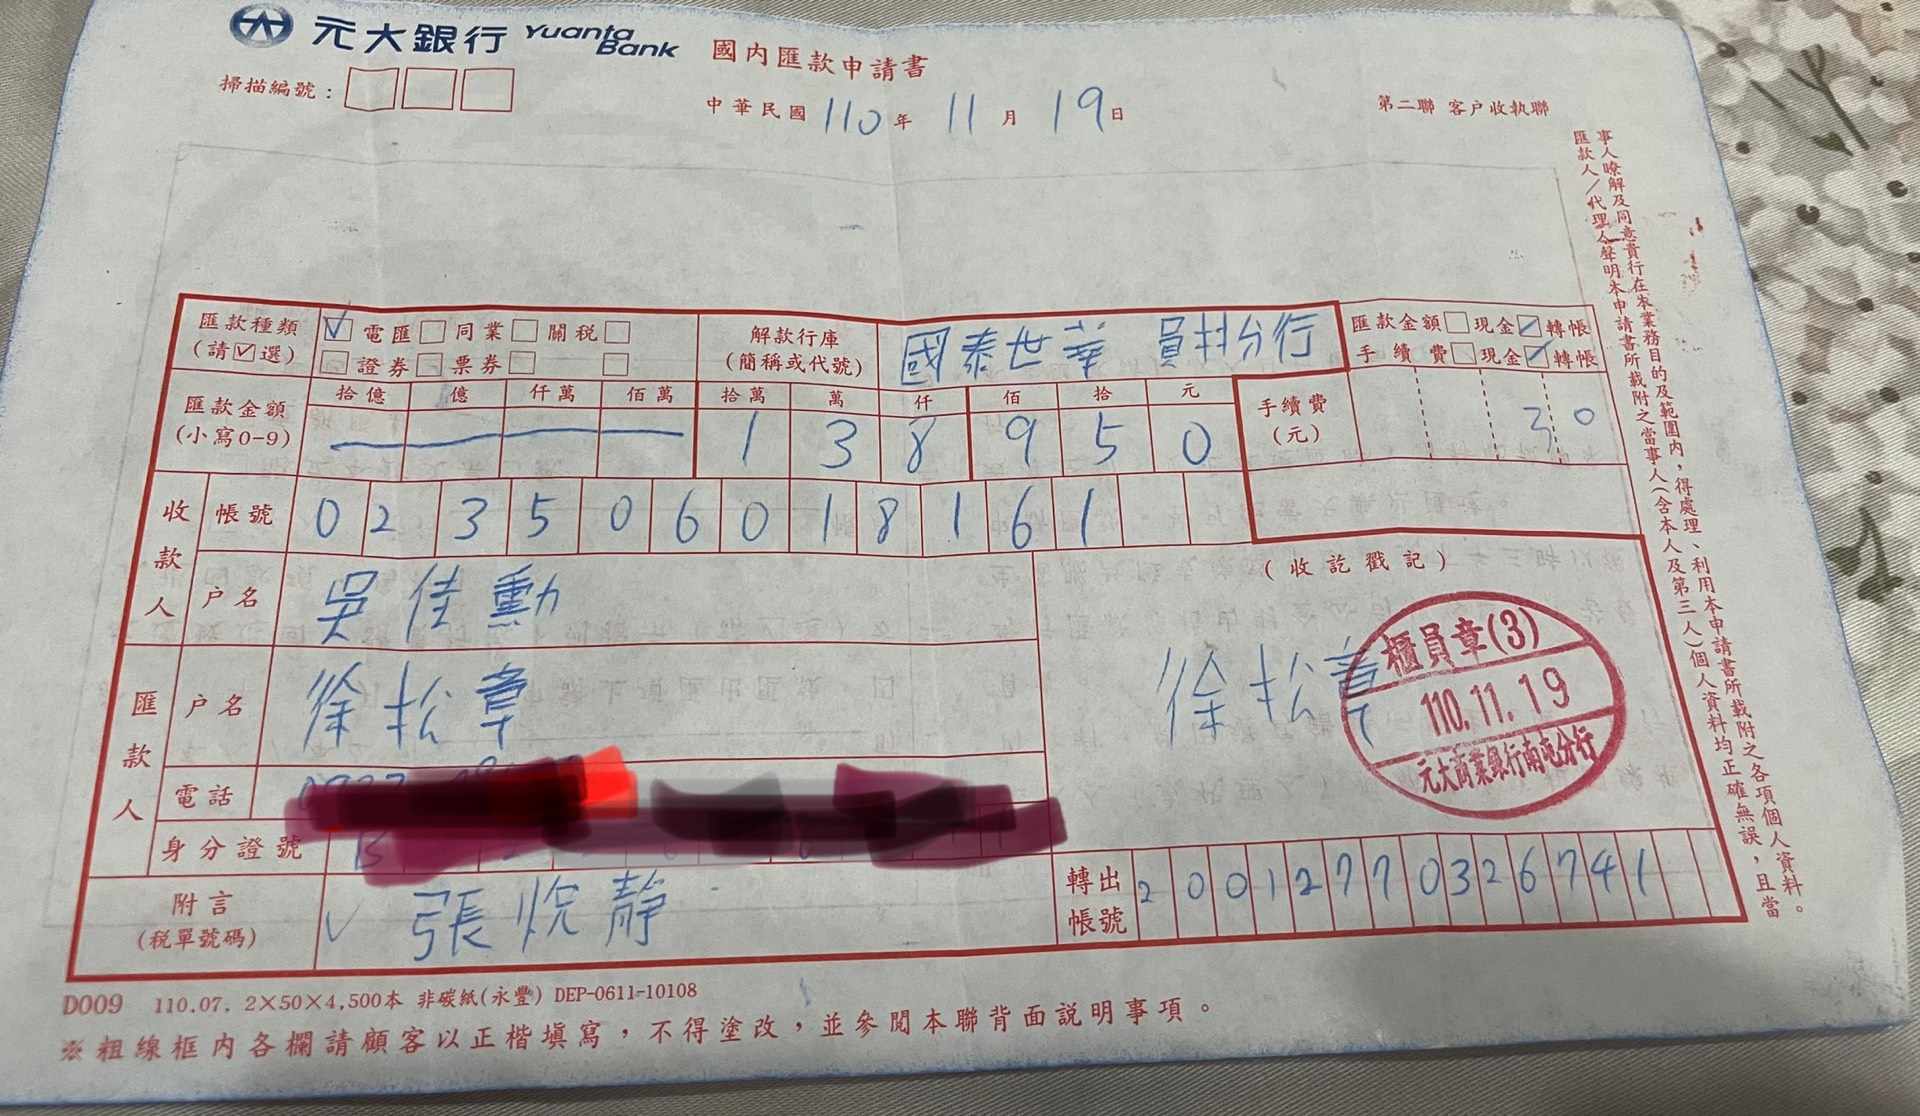 元大銀行 Yuanta Bank
國內匯款申請書
掃描編號：
中華民國 110 年 11 月 19 日
第二聯 客戶收執聯
匯款種類 (請☑選)
☑電匯 □同業 □關稅 □
□證券 □票券 □ □
解款行庫 (簡稱或代號)
國泰世華 員林分行
匯款金額 □現金 ☑轉帳
手續費 □現金 ☑轉帳
匯款金額 (小寫0-9)
拾億 億 仟萬 佰萬 拾萬 萬 仟 佰 拾 元
1 3 8 9 5 0
手續費 (元) 30
收款人
帳號 023506018161
戶名 吳佳勳
(收訖戳記)
匯款人
戶名 徐松章
徐松章
櫃員章(3)
110.11.19
元大商業銀行南屯分行
電話
身分證號
附言 (稅單號碼)
✓ 張 靜
轉出帳號 20012770326741
D009 110.07. 2×50×4,500本 非碳紙(永豐) DEP-0611-10108
※粗線框內各欄請顧客以正楷填寫，不得塗改，並參閱本聯背面說明事項。
匯款人／代理人聲明本申請書所載附之當事人(含本人及第三人)個人資料均正確無誤，且當
事人瞭解及同意貴行在本業務目的及範圍內，得處理、利用本申請書所載附之各項個人資料。